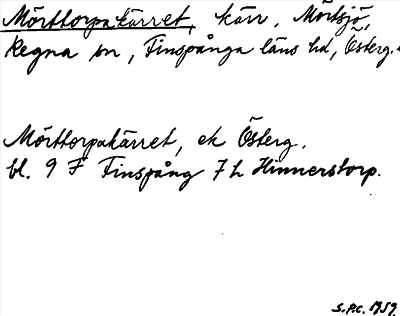 Mörttorpakärret, kärr, Mörtsjö,
Regna sn, Finspånga läns hd, Österg.
Mörttorpakärret, ek Österg.
bl. 9 F Finspång 7 h Hinnerstorp.
S.P.C. 1959.